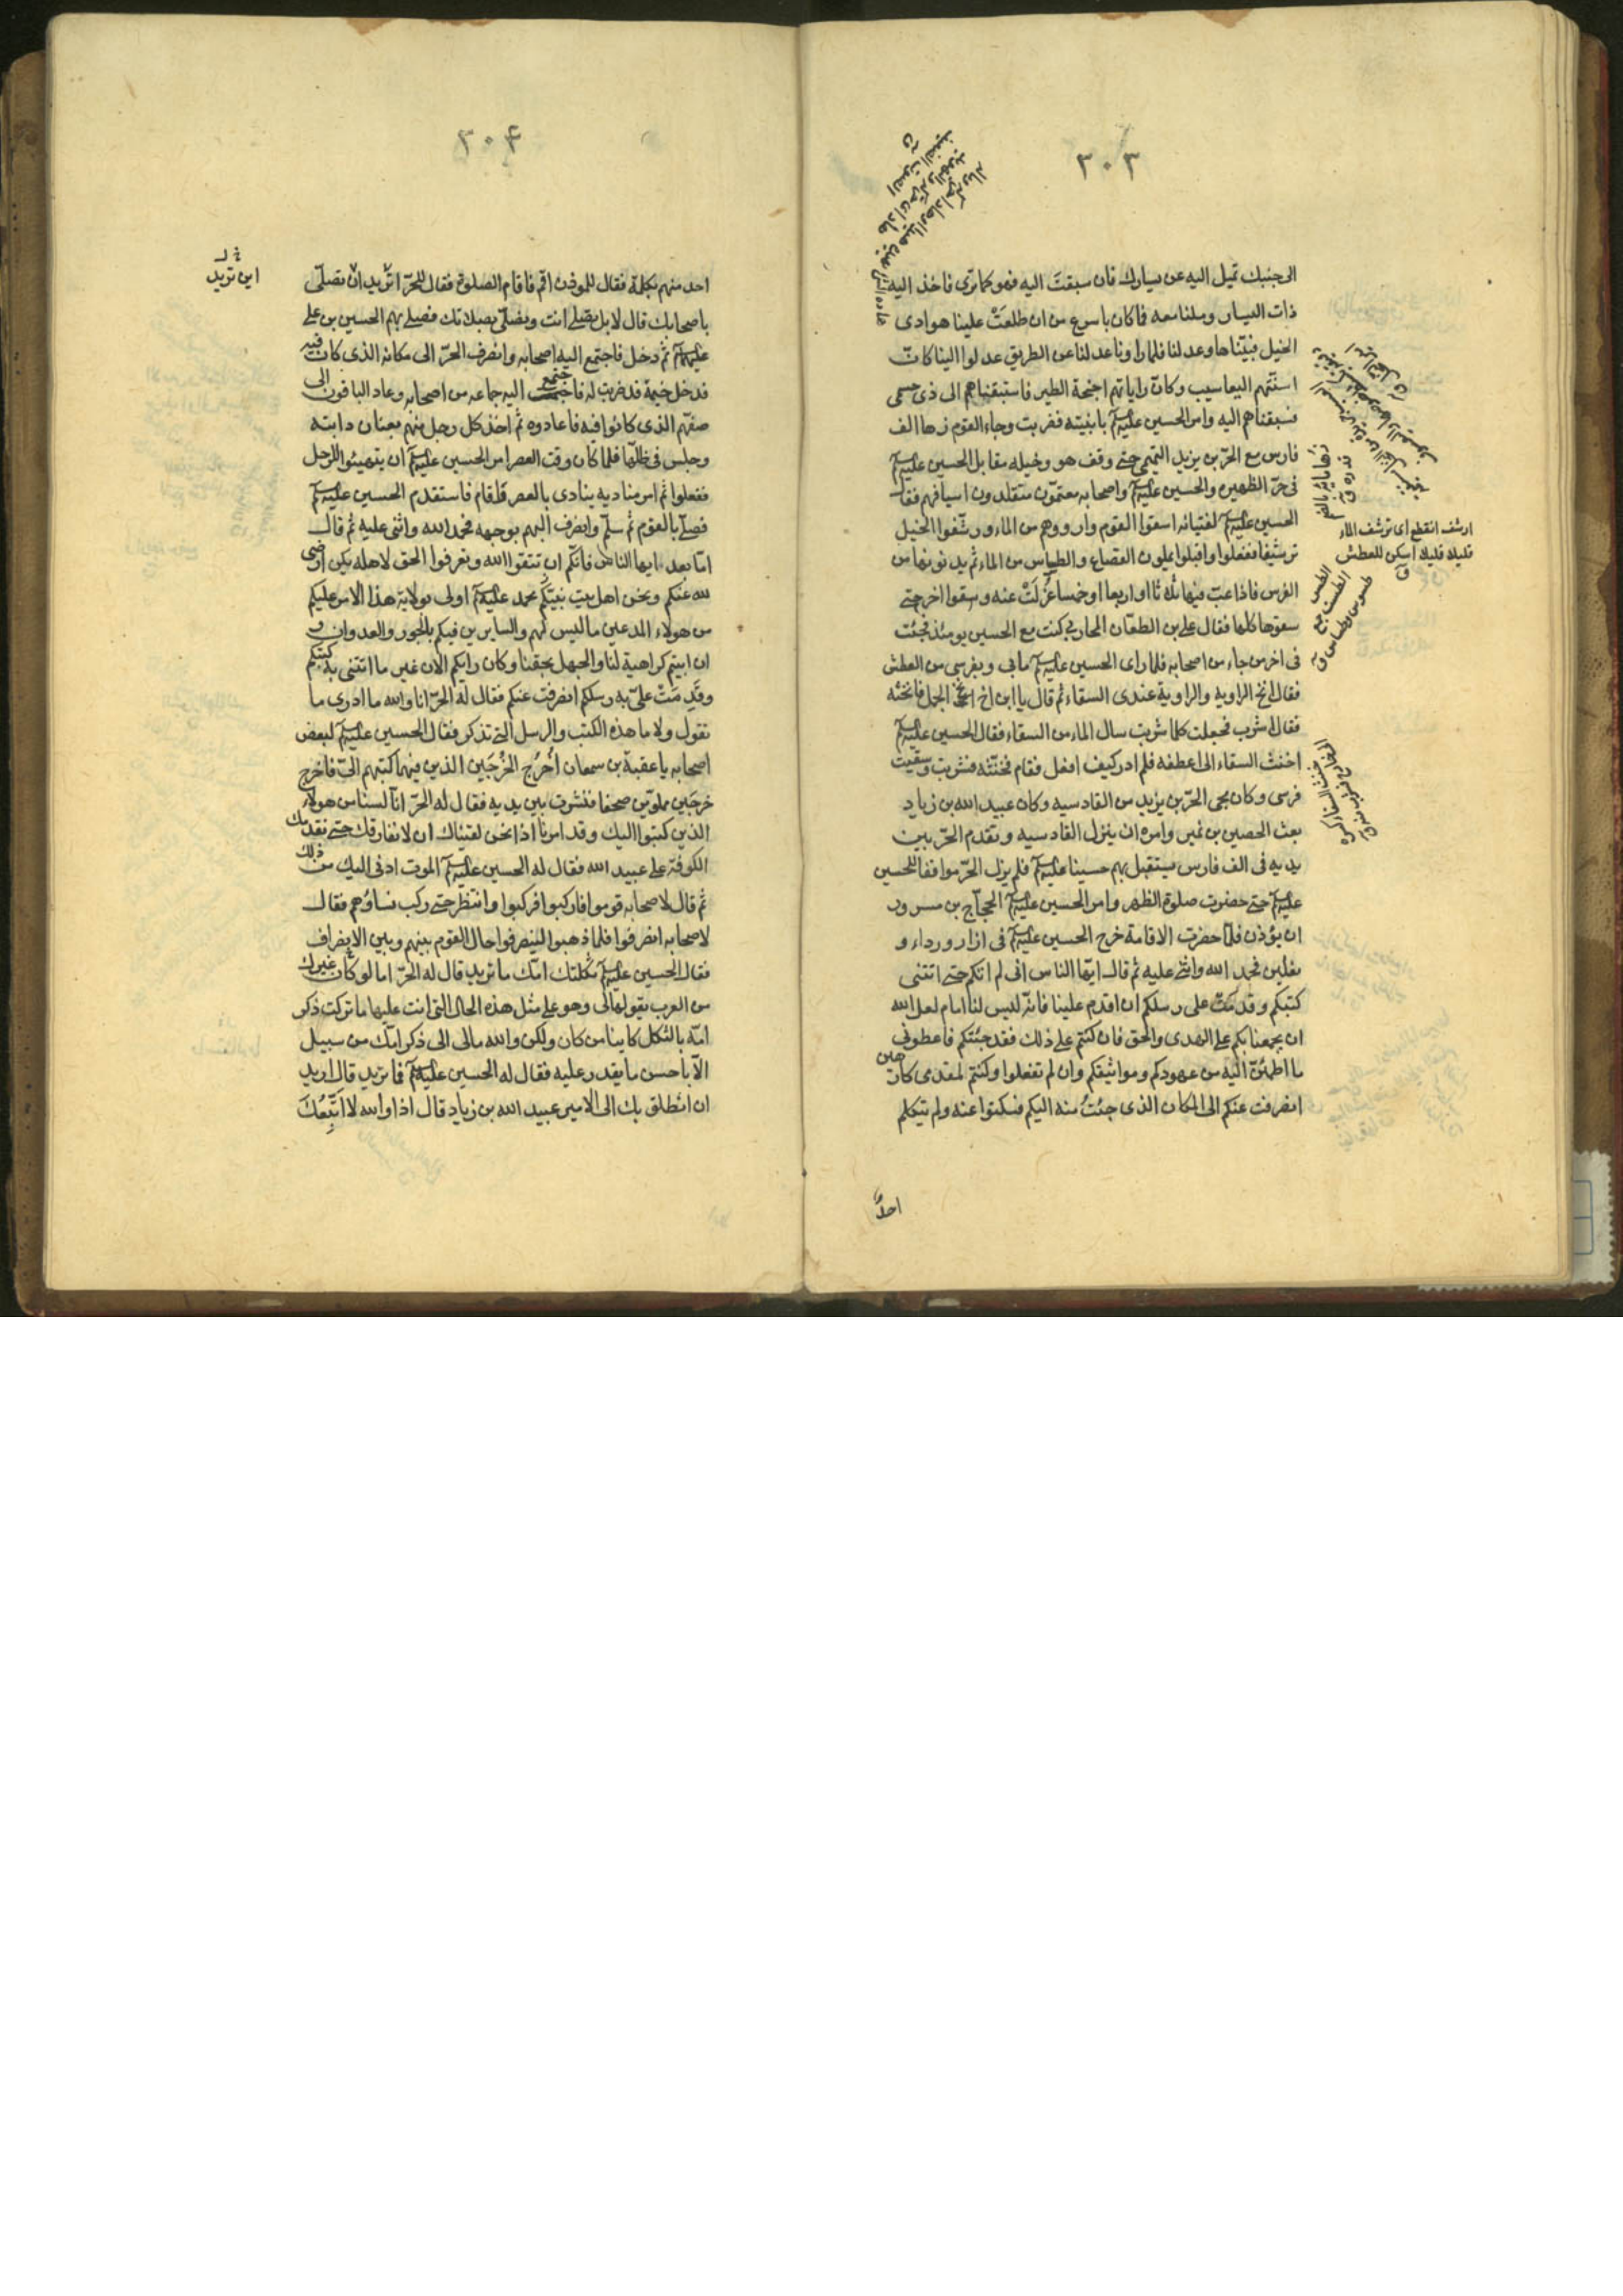 ٣٠٣
الى جنبك تميل اليه عن يسارك فان سبقت اليه فهو كما تري فاخذ اليه
ذات اليسار وملنا معه فما كان باسرع من ان طلعَتْ علينا هوادى
الخيل فبيّناها وعدلنا فلما راونا عدلنا عن الطريق عدلوا الينا كانّ
اسنّتهم اليعاسيب وكانّ راياتهم اجنحة الطير فاستبقناهم الى ذى حسمى
فسبقناهم اليه وامر الحسين عليه السلام بابنيته فضربت وجاء القوم زهاء الف
فارس مع الحرّ بن يزيد التميمى حتى وقف هو وخيله مقابل الحسين عليه السلام
فى حرّ الظهيره والحسين عليه السلام واصحابه معتمّون متقلدون اسيافهم فقال
الحسين عليه السلام لفتيانه اسقوا القوم وارووهم من الماء ورشّفوا الخيل
ترشيفا ففعلوا واقبلوا يملون القصاع والطساس من الماء ثم يدنونها من
الفرس فاذا عبّ فيها ثلاثا او اربعا او خمسا عُزلَتْ عنه وسقوا اخر حتى
سقوها كلها فقال على بن الطعّان المحاربى كنت مع الحسين يومئذ فجئت
فى اخر من جاء من اصحابه فلما راى الحسين عليه السلام ما بى وبفرسى من العطش
فقال انخ الراوية والراوية عندى السقاء ثم قال يا ابن اخ انخ الجمل فانخته
فقال اشرب فجعلت كلما شربت سال الماء من السقاء فقال الحسين عليه السلام
اخنث السقاء اى اعطفه فلم ادر كيف افعل فقام فخنثه فشربت وسقيت
فرسى وكان مجى الحرّ بن يزيد من القادسيه وكان عبيد الله بن زياد
بعث الحصين بن نمير وامره ان ينزل القادسيه وتقدم الحرّ بين
يديه فى الف فارس يستقبل بهم حسينا عليه السلام فلم يزل الحرّ موافقا للحسين
عليه السلام حتى حضرت صلوة الظهر وامر الحسين عليه السلام الحجاج بن مسرور
ان يؤذن فلمّا حضرت الاقامة خرج الحسين عليه السلام فى ازار ورداء و
نعلين فحمد الله واثنى عليه ثم قال ايّها الناس انى لم اتكم حتى اتتنى
كتبكم وقدمَتْ على رسلكم ان اقدم علينا فانّه ليس لنا امام لعل الله
ان يجمعنا بكم على الهدى والحق فان كنتم على ذلك فقد جئتكم فاعطونى
ما اطمئنّ اليه من عهودكم ومواثيقكم وان لم تفعلوا وكنتم لمقدمى كارهين
انصرفت عنكم الى المكان الذى جئتُ منه اليكم فسكتوا عنه ولم يتكلم
احدٌ
ارشف انقطع اى ترشف الماء
قليلا قليلا اسكن للعطش
ق
٣٠۴
احد منهم بكلمة فقال للموذن اقم فاقام الصلوة فقال للحرّ اتريد ان تصلّى
باصحابك قال لا بل تصلى انت ونصلّى بصلاتك فصلى بهم الحسين بن على
عليهم السلام ثم دخل فاجتمع اليه اصحابه وانصرف الحرّ الى مكانه الذى كان فيه
فدخل خيمة قد ضربت له فاجتمع اليه جماعه من اصحابه وعاد الباقون الى
صفّهم الذى كانوا فيه فاعادوه ثم اخذ كل رجل منهم بعنان دابته
وجلس فى ظلّها فلما كان وقت العصر امر الحسين عليه السلام ان يتهيئوا للرحل
ففعلوا ثم امر مناديه ينادى بالعصر فاقام فاستقدم الحسين عليه السلام
فصلّى بالقوم ثم سلّم وانصرف اليهم بوجهه فحمد الله واثنى عليه ثم قال
امّا بعد ايها الناس فانّكم ان تتقوا الله وتعرفوا الحق لاهله يكن ارضى
لله عنكم ونحن اهل بيت نبيّكم محمد عليه السلام اولى بولاية هذا الامر عليكم
من هولاء المدعين ما ليس لهم والسايرين فيكم بالجور والعدوان و
ان ابيتم كراهية لنا والجهل بحقنا وكان رايكم الان غير ما اتتنى به كتبكم
وقدمَتْ علىّ به رسلكم انصرفت عنكم فقال له الحرّ انا والله ما ادرى ما
تقول ولا ما هذه الكتب والرسل التى تذكر فقال الحسين عليه السلام لبعض
اصحابه يا عقبة بن سمعان اُخرُج الخُرجَين الذين فيهما كتبهم الىّ فاخرج
خرجَين مملوّين صحفا فنشرت بين يديه فقال له الحرّ انّا لسنا من هولاء
الذين كتبوا اليك وقد امرنا اذا نحن لقيناك ان لا نفارقك حتى نقدمك
الكوفة على عبيد الله فقال له الحسين عليه السلام الموت ادنى اليك من ذلك
ثم قال لاصحابه قوموا فاركبوا فركبوا وانتظر حتى ركب نساؤهم فقال
لاصحابه انصرفوا فلما ذهبوا لينصرفوا حال القوم بينهم وبين الانصراف
فقال الحسين عليه السلام ثكلتك امّك ما تريد قال له الحرّ اما لو كان غيرك
من العرب يقولها لى وهو على مثل هذه الحال التى انت عليها ما تركت ذكر
امّه بالثكل كاينا من كان ولكن والله مالى الى ذكر امّك من سبيل
الّا باحسن ما يقدر عليه فقال له الحسين عليه السلام فما تريد قال اريد
ان انطلق بك الى الامير عبيد الله بن زياد قال اذا والله لا اتّبعُكَ
اين تريد